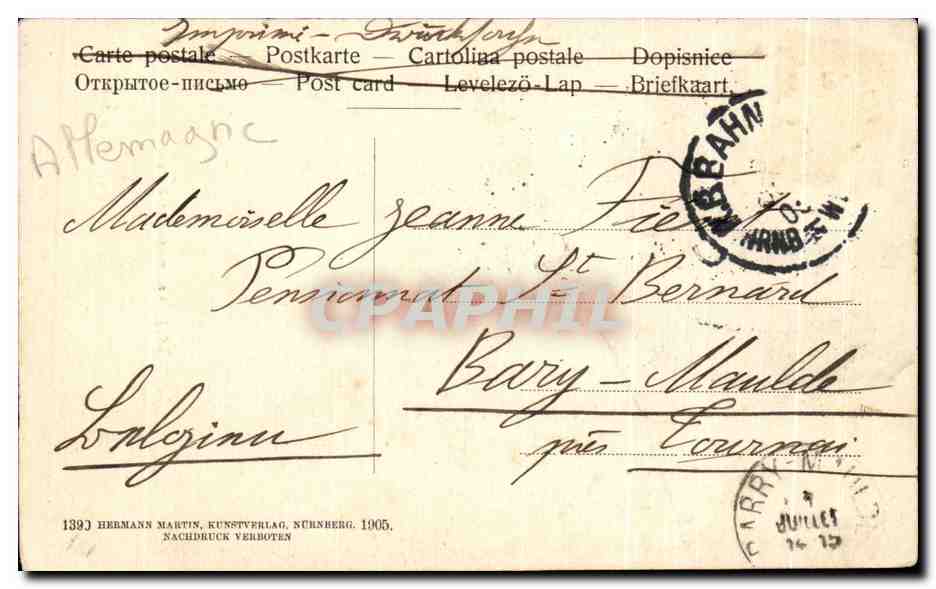 Imprimé - Drucksache
Carte postale — Postkarte — Cartolina postale — Dopisnice
Открытое-письмо — Post card — Levelező-Lap — Briefkaart.
Allemagne
BAHN
Mademoiselle Jeanne
Pensionnat St Bernard
CPAPHIL
Bary - Maulde
Belgien
près Tournai
BARRY-M
JUILLET
HERMANN MARTIN, KUNSTVERLAG, NÜRNBERG. 1905.
NACHDRUCK VERBOTEN